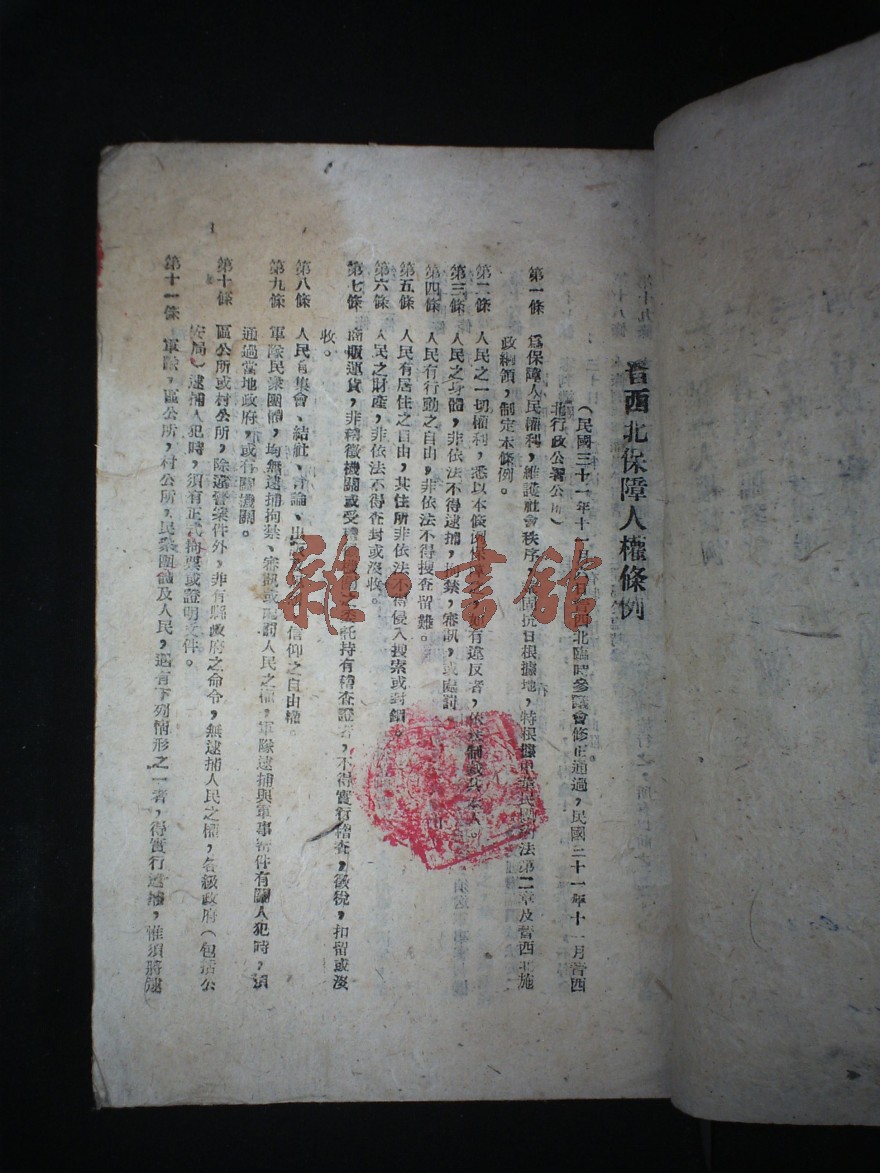 晋西北保障人權條例
（民國三十一年十一月 日晋西北臨時參議會修正通過，民國三十一年十一月晋西
北行政公署公佈）
第一條 為保障人民權利，維護社會秩序，鞏固抗日根據地，特根據中華民國 法第二章及晋西北施
政綱領，制定本條例。
第二條 人民之一切權利，悉以本條例保 之，如有違反者，依法制裁
第三條 人民之身體，非依法不得逮捕，拘禁，審訊，或處罰。
第四條 人民有行動之自由，非依法不得搜查留難。
第五條 人民有居住之自由，其住所非依法不得侵入搜索或封錮。
第六條 人民之財產，非依法不得查封或沒收。
第七條 商販運貨，非稽徵機關或受稽 託持有稽查證者，不得實行稽查，徵稅，扣留或沒
收。
第八條 人民有集會、結社、言論、出 信仰之自由權。
第九條 軍隊民衆團體，均無逮捕拘禁、審訊或處罰人民之權，軍隊逮捕與軍事案件有關人犯時，須
通過當地政府，或有關機關。
第十條 區公所或村公所，除違警案件外，非有縣政府之命令，無逮捕人民之權，各級政府（包括公
安局）逮捕人犯時，須有正式拘票或證明文件。
第十一條 軍隊，區公所，村公所，民衆團體及人民，遇有下列情形之一者，得實行逮捕，惟須將逮
1
雜·書館